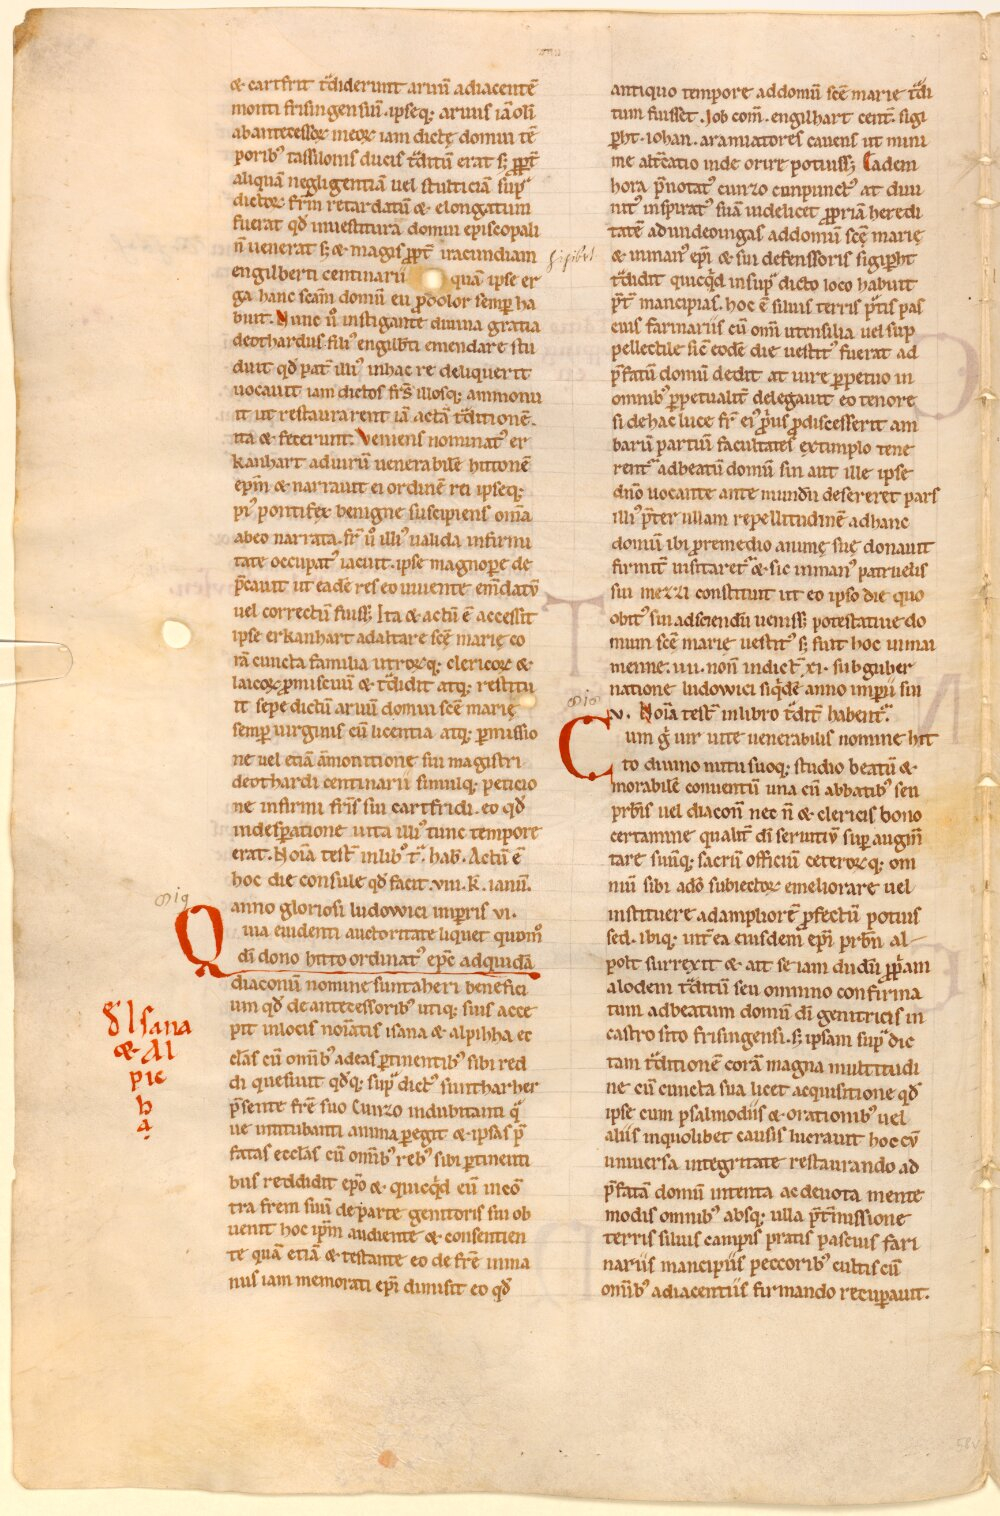 & cartfrit t͛diderunt aruū adiacentē
monti frisingensiū. ipseq; aruus iā olī
abantecessoꝝ meoꝝ iam dictę domui tē
porib᾽ tassilonis ducis t͛ditū erat s; ꝓpt̄
aliquā negligentiā uel stulticiā sup͛
dictoꝝ fr̄m retardatū & elongatum
fuerat qđ inuestiturā domui episcopali
n̄ uenerat s; & magis ꝓpt̄ iracundiam
engilberti centinarii quā ipse er
ga hanc sc̄am domū eu ꝓdolor semꝑ ha
buit. Nunc u̇ instigante diuina gratia
deothardus fili᾽ engilb̄ti emendare stu
duit qđ pat̄ illi᾽ inhac re deliquerit
uocauit iam dictos fr̄s illosq; ammonu
it ut restaurarent iā actā t͛ditionē.
ita & fecerunt. Veniens nominat᾽ er
kanhart aduirū uenerabilē hittonē
ep̄m & narrauit ei ordinē rei ipseq;
pi᾽ pontifex benigne suscipiens om̄a
abeo narrata. fr̄ u̇ illi᾽ ualida infirmi
tate occupat᾽ iacuit. ipse magnopere de
p̄cauit ut eadē res eo uiuente em̄datū
uel correctū fuiss; Ita & actū ē accessit
ipse erkanhart adaltare sc̄ę marię co
rā cuncta familia utroꝝq; clericoꝝ &
laicoꝝ ꝑmiscuū & t͛didit atq; restitu
it sepe dictū aruū domui sc̄ę marię
semꝑ uirginis cū licentia atq; ꝑmissio
ne uel etiā āmonitione sui magistri
deothardi centinarii simulq; peticio
ne infirmi fr̄is sui cartfridi. eo qđ
indesꝑatione uita illi᾽ tunc tempore
erat. Noīa test̄ inlib᾽ t͛. hab̄. Actū ē
hoc die consule qđ facit .viii. k̄. ianū.
anno gloriosi ludowici imꝑris vi.
Quia euidenti auctoritate liquet quom̊
dī dono hitto ordinat᾽ ep̄c adquidā
diaconū nomine suntaheri benefici
um qđ de antecessorib᾽ utiq; suis acce
pit inlocis noīatis isana & alpihha ec
cl̄as cū omīb᾽ adeas ꝑtinentib᾽ sibi red
di quesiuit qđq; sup͛ dict᾽ suntharher
p̄sente fr̄e suo Cunzo indubitanti q͛
ue intitubanti anima ꝑegit & ipsas p̄
fatas eccl̄as cū omīb᾽ reb᾽ sibi ꝑtinenti
bus reddidit ep̄o & quicq̇d cū incō
tra frem suū de parte genitoris sui ob
uenit hoc ip̄m audiente & consentien
te quā etiā & testante eo de fr̄e inma
nus iam memorati ep̄i dimisit eo qđ
Sig
đ Isana
& Al
pic
h
a
sigib̄t
antiquo tempore addomū sc̄e marie t͛di
tum fuisset. Job com̄. engilhart cent̄. sigi
ꝑht. iohan. aramiatores cauens ut mini
me alt̄catio inde orire potuiss; Eadem
hora p̄notat᾽ cunzo cunpunct᾽ at diui
nit᾽ inspirat᾽ suā uidelicet ꝓpriā heredi
tatē adundeoingas addomū sc̄ę marię
& inman᾽ ep̄i & sui defenssoris sigiꝑht
t͛didit quicq̇d insup͛ dicto ioco habuit
p̄t̄ mancipias. hoc ē siluis terris p̄tis pas
cuis farinariis cū om̄i utensilia uel sup
pellectile sic̄ eodē die uestit᾽ fuerat ad
p̄fatū domū dedit at iure ꝑpetuo in
omnib᾽ ꝑpetualit̄ delegauit eo tenore
si dehac luce fr̄ ei᾽ ṗus ꝓdiscesserit am
barū partiū facultates extimplo tene
rent͛ adbeatū domū sin aut ille ipse
dn̄o uocante ante mundū desereret pars
illi᾽ p̄ter ullam repellitudinē adhanc
domū ibi pro remedio animę suę donauit
firmit̄ uisitaret͛ & sic inman᾽ patruelis
sui mezzi constituit ut eo ipso die quo
obit᾽ sui adsciendū ueniss; potestatiue do
mum sc̄e marie uestit᾽ s; fuit hoc inmai
menne. iiii. non̄ indict̄. xi. sub guber
natione ludowici siq̇dē anno imꝑii sui
v. Noīa test̄ inlibro t͛dit̄ habent͛.
Sig
Cum ġ uir uite uenerabilis nomine hit
to diuino nutu suoq; studio beatū &
morabilē conuentū una cū abbatib᾽ seu
prb̄is uel diacon̄ nec n̄ & clericis bono
certamine qualit̄ dī seruitiū suꝑ augm̄
tare suūq; sacrū officiū ceteroꝝq; om
niū sibi adō subiectoꝝ emeliorare uel
instituere adampliorē ꝓfectū potuis
sed. ibiq; int̄ ea eiusdem ep̄i prb̄n al
polt surrexit & ait se iam dudū ꝓp͛am
alodem t͛ditū seu omnino confirma
tum adbeatum domū dī genitricis in
castro sito frisingensi. s; ipsam sup͛ dic
tam t͛ditionē corā magna multitudi
ne cū cuncta sua licet acquisitione qđ
ipse cum psalmodiis & orationib᾽ uel
aliis inquolibet causis lucrauit hoc cū
uniuersa integritate restaurando ad
p̄fatā domū intenta ac deuota mente
modis omnib᾽ absq; ulla p̄t̄missione
terris siluis campis pratis pascuis fari
nariis mancipiis peccorib᾽ cultis cū
omīb᾽ adiacentiis firmando recuꝑauit.
58v